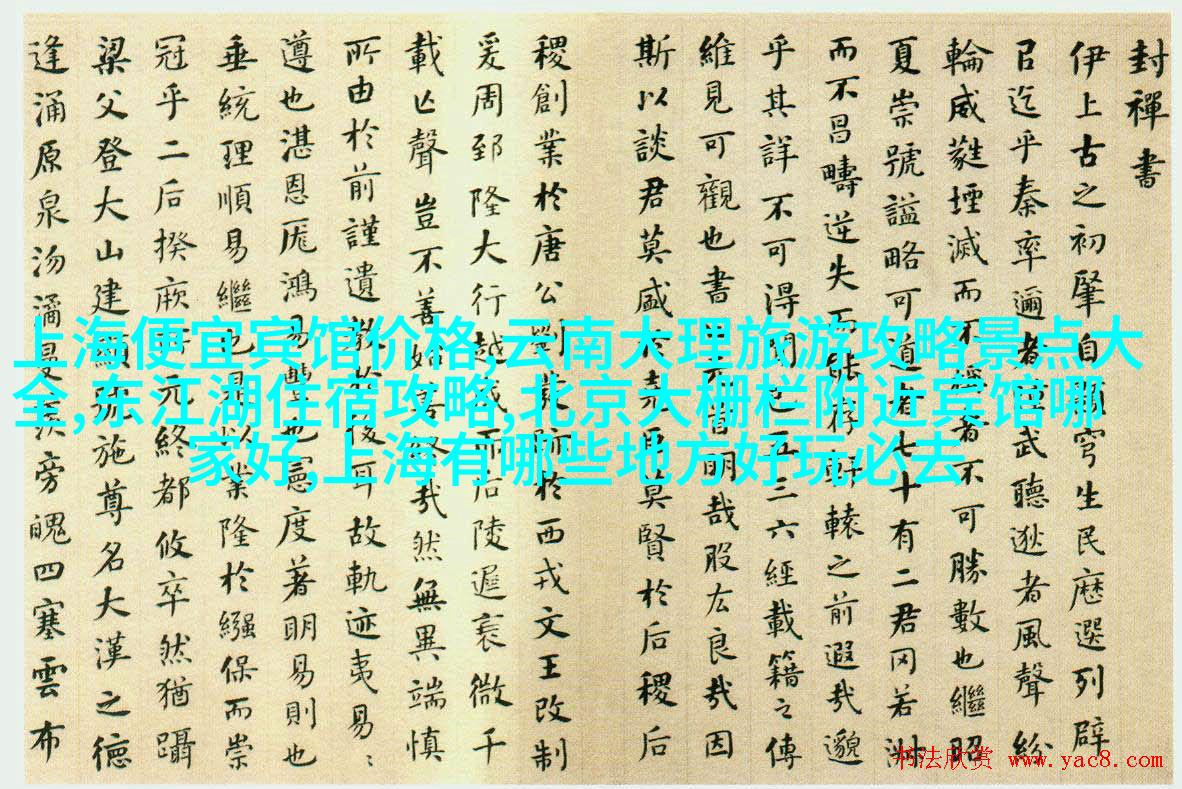 封禪書
伊上古之初肇自穹生民歷選列辟
㠯迄乎秦率邇者踵武聽逖者風聲紛
輪威蕤堙滅而不稱者不可勝數也繼昭
夏崇號謚略可道者七十有二君罔若淑
而不昌疇逆失而能存軒轅之前遐哉邈
乎其詳不可得聞已五三六經載籍之傳
維見可觀也書首明哉股厷良哉因
斯以談君莫盛於堯臣莫賢於后稷后
稷創業於唐公劉發於西戎文王改制
爰周郅隆大行越成而后陵遲衰微千
載亡聲豈不善始善終哉然無異端慎
所由於前謹遺教於後耳故軌迹夷易〻
遵也湛恩厖鴻易豐也憲度著明易則也
垂統理順易繼也是以業隆於繈保而崇
冠乎二后揆厥元終都攸卒然猶躡
梁父登大山建顯號施尊名大漢之德
逢涌原泉沕潏曼羨旁魄四塞雲布
上海便宜宾馆价格,云南大理旅游攻略景点大
全,东江湖住宿攻略,北京大栅栏附近宾馆哪
家好,上海有哪些地方好玩必去
书法欣赏 www.yac8.com